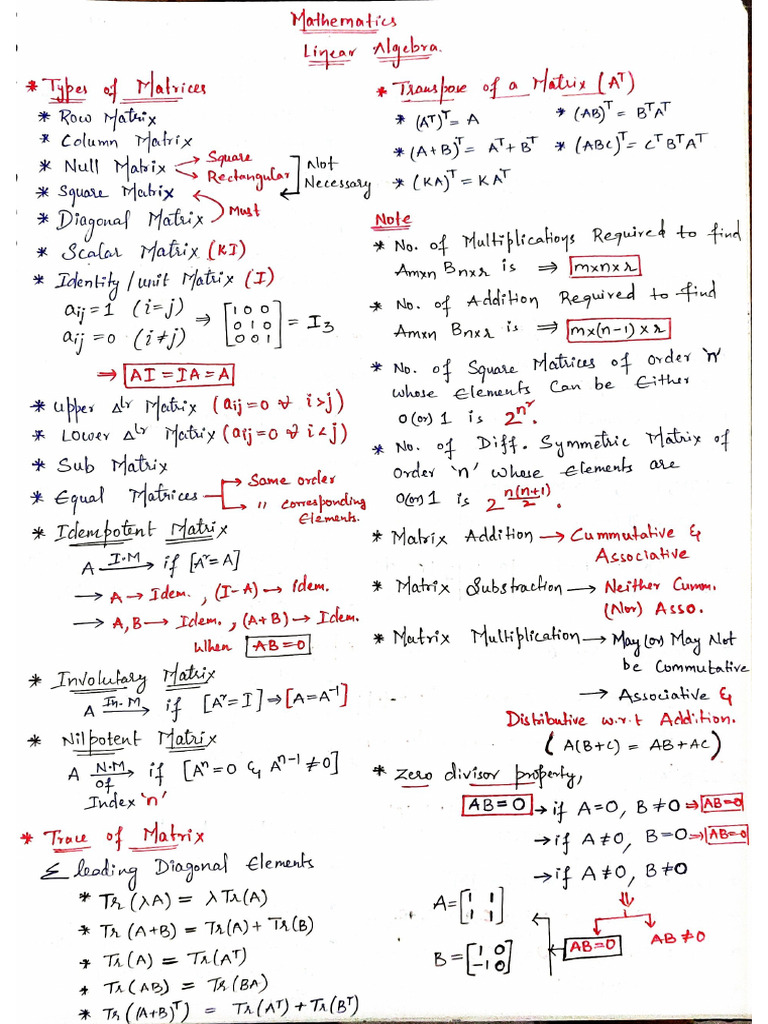 Mathematics
Linear Algebra.
* Types of Matrices
* Row Matrix
* Column Matrix
* Null Matrix → Square
→ Rectangular
Not Necessary
* Square Matrix
* Diagonal Matrix
Must
* Scalar Matrix (KI)
* Identity/unit Matrix (I)
aij = 1 (i=j)
aij = 0 (i≠j) ⇒ [1 0 0
0 1 0
0 0 1] = I₃
⇒ AI = IA = A
* Upper Δlr Matrix (aij=0 ∀ i>j)
* Lower Δlr Matrix (aij=0 ∀ i<j)
* Sub Matrix
* Equal Matrices → Same order
→ " corresponding
Elements.
* Idempotent Matrix
A I.M → if [A²=A]
→ A → Idem., (I-A) → Idem.
→ A, B → Idem., (A+B) → Idem.
When AB=0
* Involutary Matrix
A In.M → if [A²=I] ⇒ [A=A⁻¹]
* Nilpotent Matrix
A N.M → if [Aⁿ=0 & Aⁿ⁻¹≠0]
of
Index 'n'
* Trace of Matrix
Σ leading Diagonal Elements
* Tr(λA) = λ Tr(A)
* Tr(A+B) = Tr(A) + Tr(B)
* Tr(A) = Tr(Aᵀ)
* Tr(AB) = Tr(BA)
* Tr((A+B)ᵀ) = Tr(Aᵀ) + Tr(Bᵀ)
* Transpose of a Matrix (Aᵀ)
* (Aᵀ)ᵀ = A * (AB)ᵀ = BᵀAᵀ
* (A+B)ᵀ = Aᵀ+Bᵀ * (ABC)ᵀ = CᵀBᵀAᵀ
* (KA)ᵀ = KAᵀ
Note
* No. of Multiplications Required to find
Amxn Bnxr is ⇒ mxnxr
* No. of Addition Required to find
Amxn Bnxr is ⇒ mx(n-1)xr
* No. of Square Matrices of order 'n'
whose Elements Can be Either
0 (or) 1 is 2^n².
* No. of Diff. Symmetric Matrix of
Order 'n' whose Elements are
0 (or) 1 is 2^n(n+1)/2.
* Matrix Addition → Cummutative &
Associative
* Matrix Substraction → Neither Cumm.
(Nor) Asso.
* Matrix Multiplication → May (or) May Not
be Commutative
→ Associative &
Distributive w.r.t Addition.
(A(B+C) = AB+AC)
* Zero divisor property,
AB=0 → if A=0, B≠0 → AB=0
→ if A≠0, B=0 → AB=0
→ if A≠0, B≠0
⇓
AB=0 AB≠0
A = [1 1
1 1]
B = [1 0
-1 0]